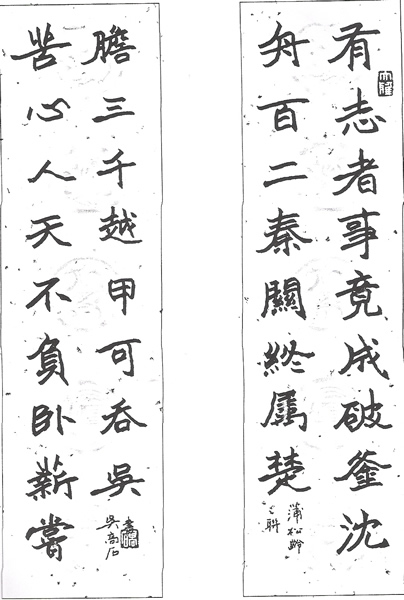 有志者事竟成破釜沈
舟百二秦關終屬楚
蒲松齡
之聯
苦心人天不負臥薪嘗
膽三千越甲可吞吳
吳高石
書